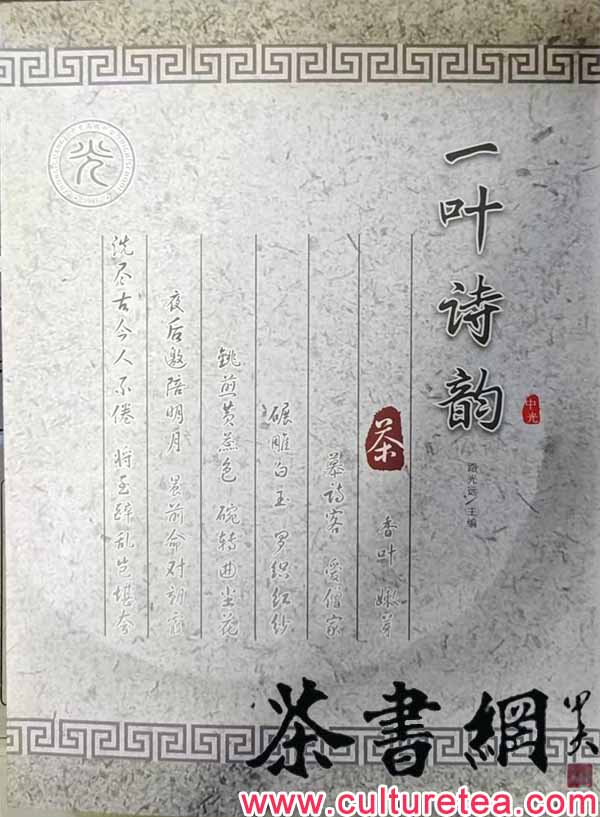 一叶诗韵
中光
路光远/主编
茶
香叶 嫩芽
慕诗客 爱僧家
碾雕白玉 罗织红纱
铫煎黄蕊色 碗转曲尘花
夜后邀陪明月 晨前命对朝霞
洗尽古今人不倦 将至醉乱岂堪夸
茶書網
www.culturetea.com